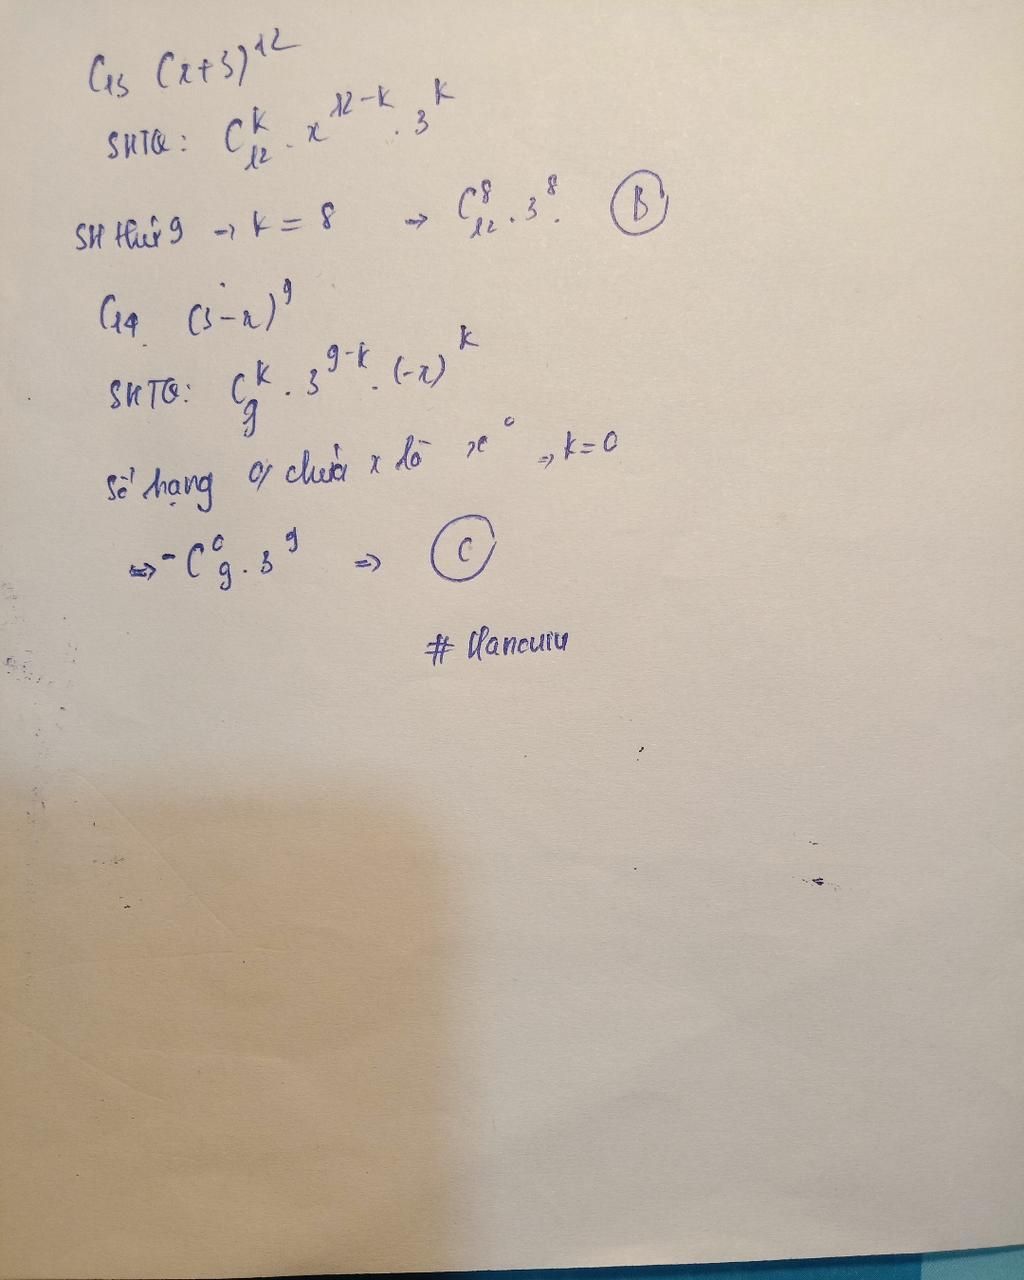 C13 (x+3)^12
SHTQ: C_12^k . x^(12-k) . 3^k
SH thứ 9 → k = 8 ⇒ C_12^8 . 3^8. B
C14 (3-x)^9
SHTQ: C_9^k . 3^(9-k) . (-x)^k
số hạng o/ chứa x là x^0 ⇒ k=0
⇒ - C_9^0 . 3^9 ⇒ C